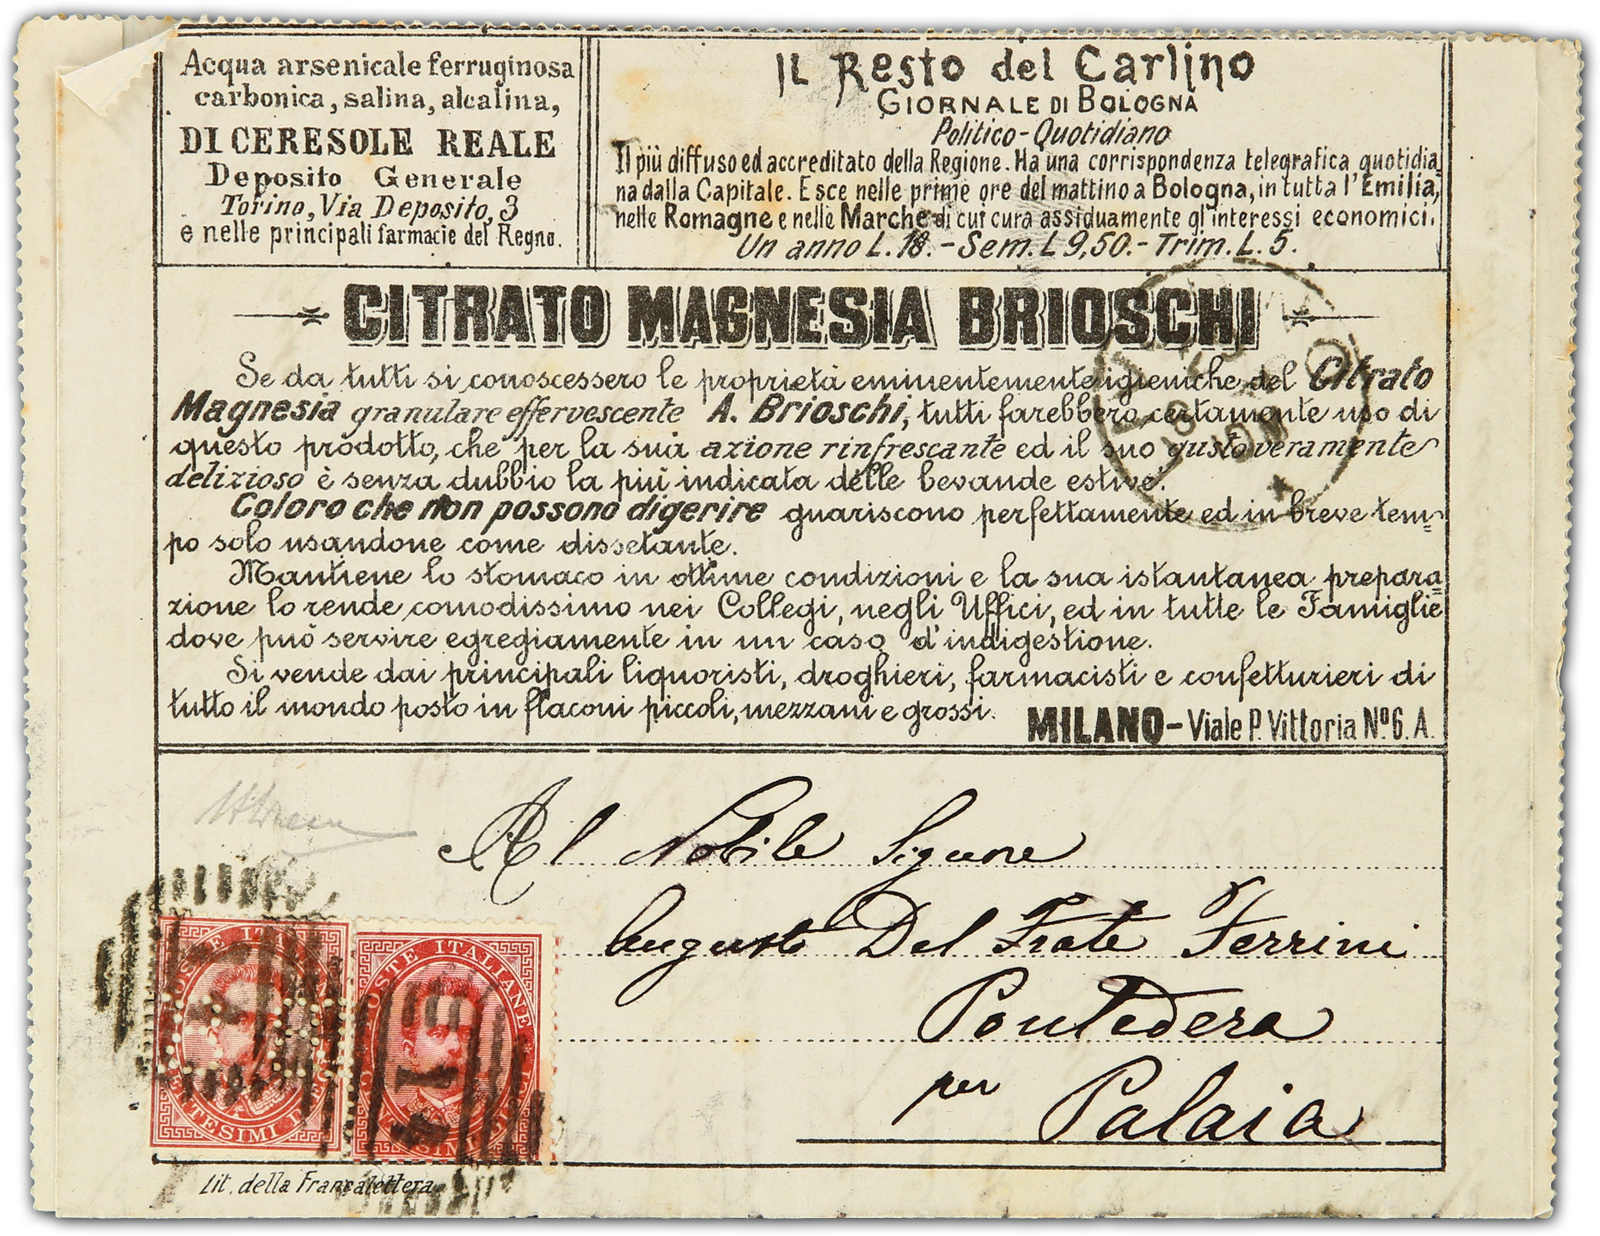 Acqua arsenicale ferruginosa
carbonica, salina, alcalina,
DI CERESOLE REALE
Deposito Generale
Torino, Via Deposito, 3
e nelle principali farmacie del Regno.
IL Resto del Carlino
GIORNALE DI BOLOGNA
Politico-Quotidiano
Il più diffuso ed accreditato della Regione. Ha una corrispondenza telegrafica quotidia
na dalla Capitale. Esce nelle prime ore del mattino a Bologna, in tutta l'Emilia,
nelle Romagne e nelle Marche di cui cura assiduamente gl'interessi economici.
Un anno L. 18.- Sem. L 9,50.- Trim. L. 5.
CITRATO MAGNESIA BRIOSCHI
Se da tutti si conoscessero le proprietà eminentemente igieniche del Citrato
Magnesia granulare effervescente A. Brioschi, tutti farebbero certamente uso di
questo prodotto, che per la sua azione rinfrescante ed il suo gusto veramente
delizioso è senza dubbio la più indicata delle bevande estive.
Coloro che non possono digerire guariscono perfettamente ed in breve tem=
po solo usandone come dissetante.
Mantiene lo stomaco in ottime condizioni e la sua istantanea prepara=
zione lo rende comodissimo nei Collegi, negli Uffici, ed in tutte le Famiglie
dove può servire egregiamente in un caso d'indigestione.
Si vende dai principali liquoristi, droghieri, farmacisti e confetturieri di
tutto il mondo posto in flaconi piccoli, mezzani e grossi.
MILANO - Viale P. Vittoria Nº 6. A.
Al Nobile Signore
Augusto Del Frate Ferrini
Pontedera
per Palaia
POSTE ITALIANE
Lit. della Francalettera